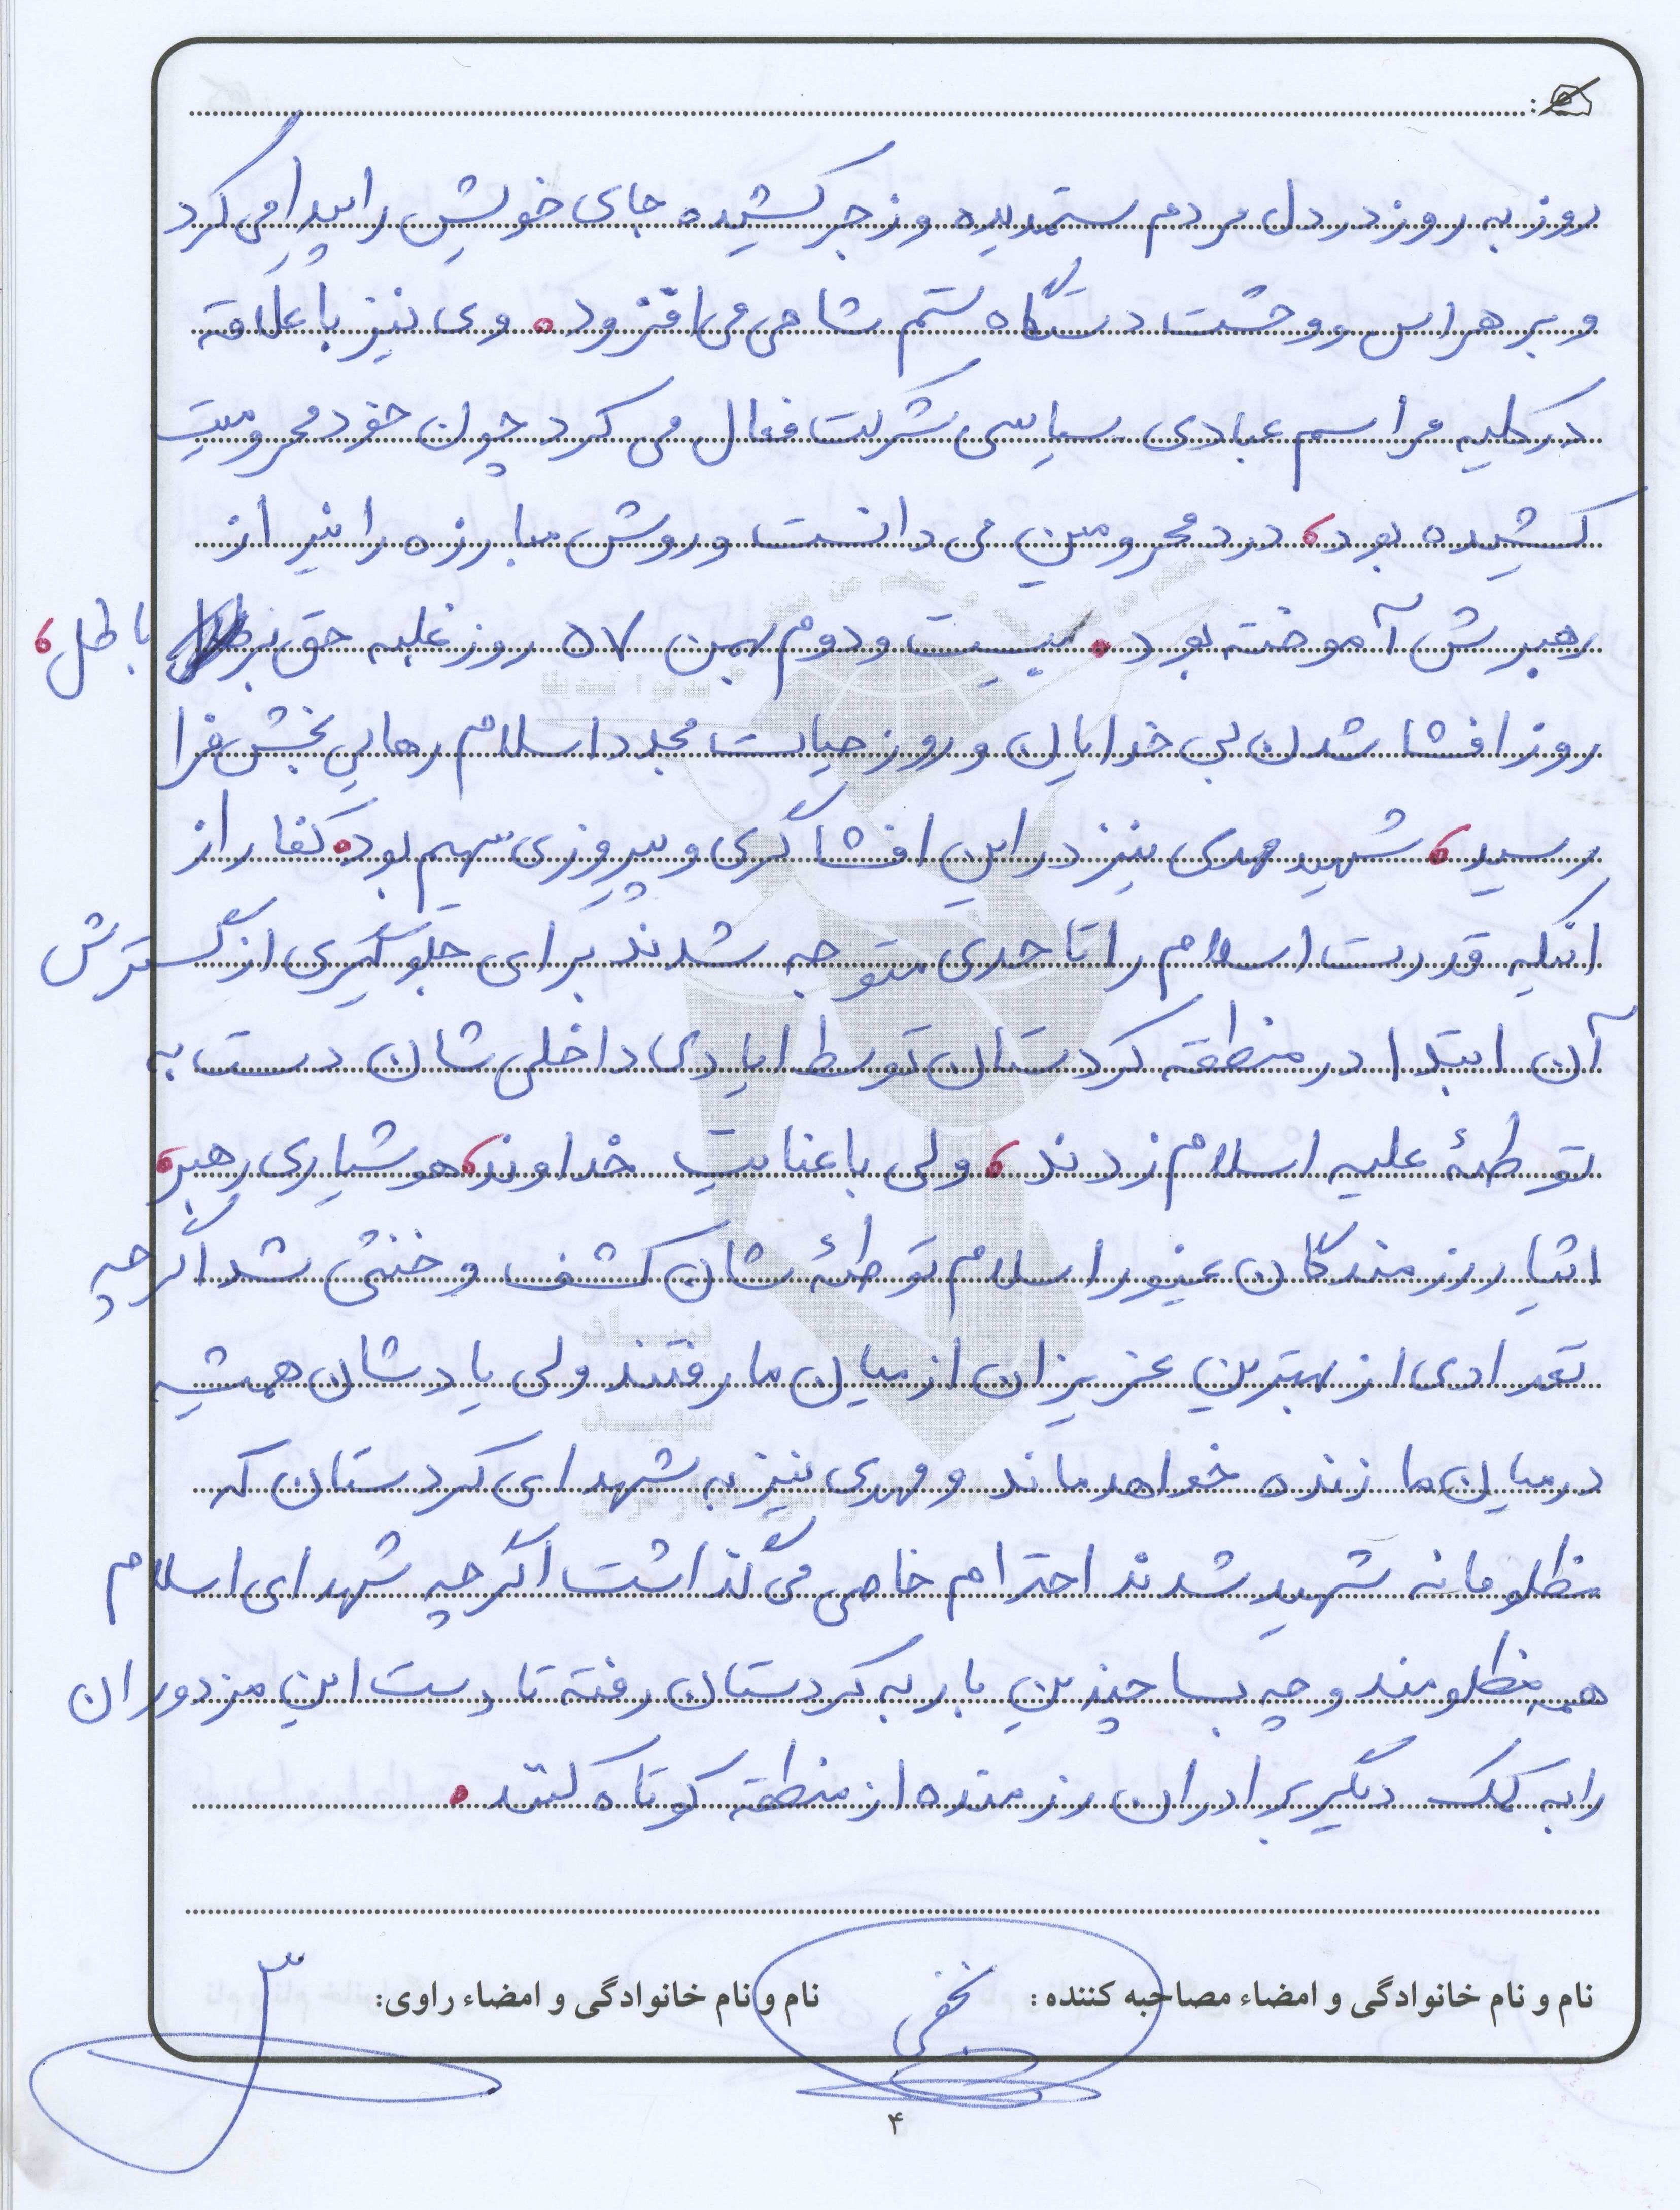 روز به روز در دل مردم ستمدیده و زجر کشیده جای خویش را پیدا می کرد
و بر هراس و وحشت دستگاه ستم شاهی می افزود. وی نیز با علاقه
در کلیه مراسم عبادی سیاسی شرکت فعال می کرد چون خود محرومیت
کشیده بود، درد محرومین می دانست و روش مبارزه را نیز از
رهبرش آموخته بود. بیست و دوم بهمن ۵۷ روز غلبه حق بر باطل،
روز افشا شدن بی خدایان و روز حیات مجدد اسلام رهایی بخش فرا
رسید، شهید مهدی نیز در این افشاگری و پیروزی سهیم بود. کفار از
انکیه قدرت اسلام را تا حدی متوجه شدند برای جلوگیری از گسترش
آن ابتدا در منطقه کردستان توسط ایادی داخلی شان دست به
توطئه علیه اسلام زدند، ولی با عنایت خداوند، هوشیاری رهبر،
اثیار رزمندگان غیور اسلام توطئه شان کشف و خنثی شد اگر چه
تعدادی از بهترین عزیزان از میان ما رفتند ولی یادشان همیشه
در میان ما زنده خواهد ماند و مهدی نیز به شهدای کردستان که
مظلومانه شهید شدند احترام خاصی می گذاشت اگر چه شهدای اسلام
همه مظلومند و چه بسا چندین بار به کردستان رفته تا دست این مزدوران
را به کمک دیگر برادران رزمنده از منطقه کوتاه کنند.
نام و نام خانوادگی و امضاء مصاحبه کننده: نام و نام خانوادگی و امضاء راوی:
۴